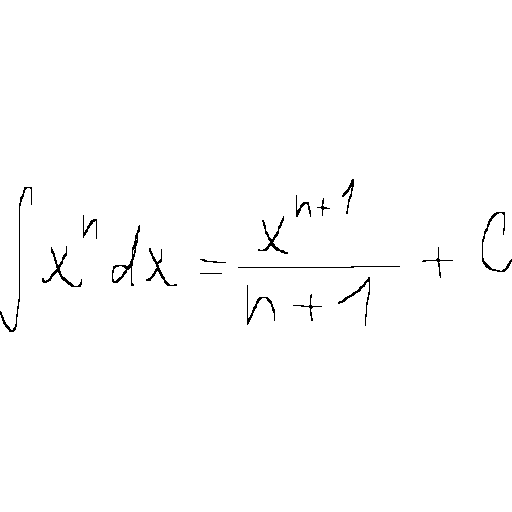 ∫ xⁿ dx = \frac{x^{n+1}}{n+1} + C